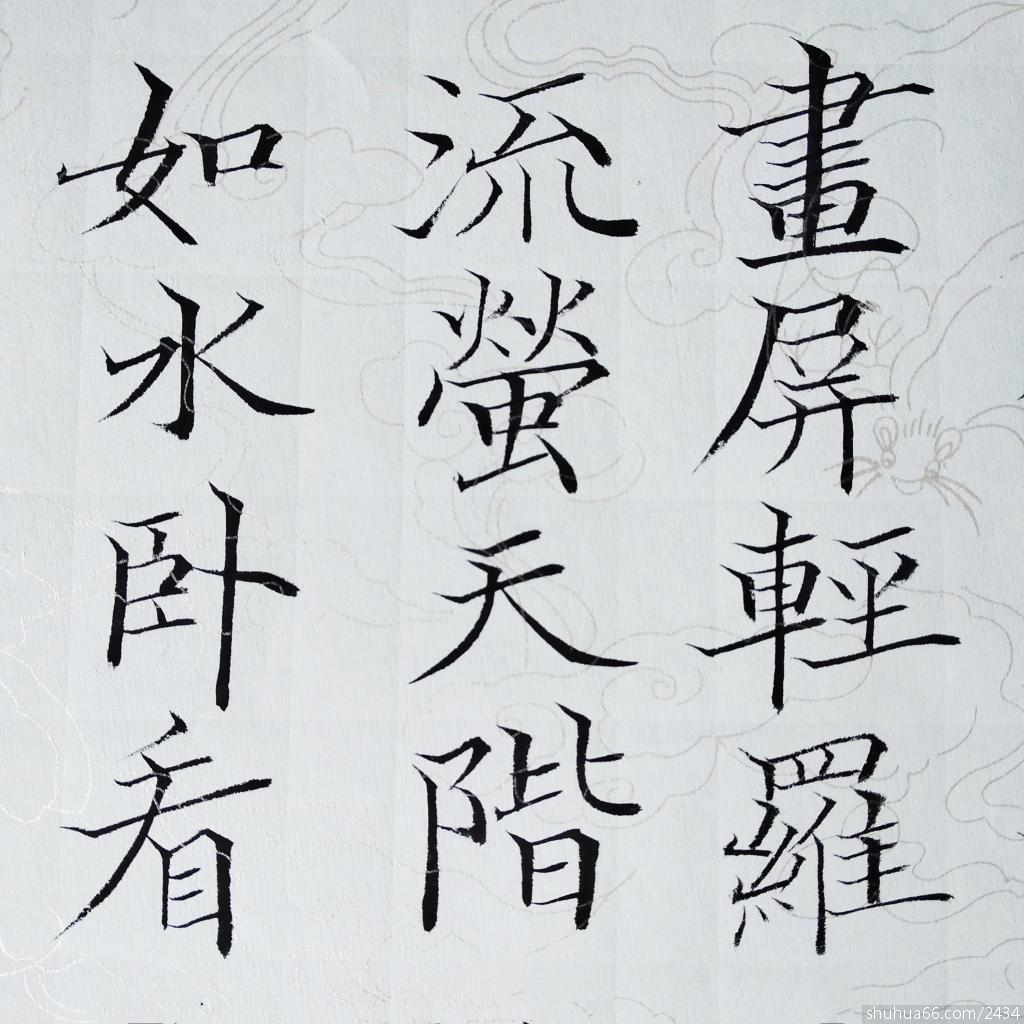 畫屏輕羅
流螢天階
如水卧看
shuhua66.com/2434